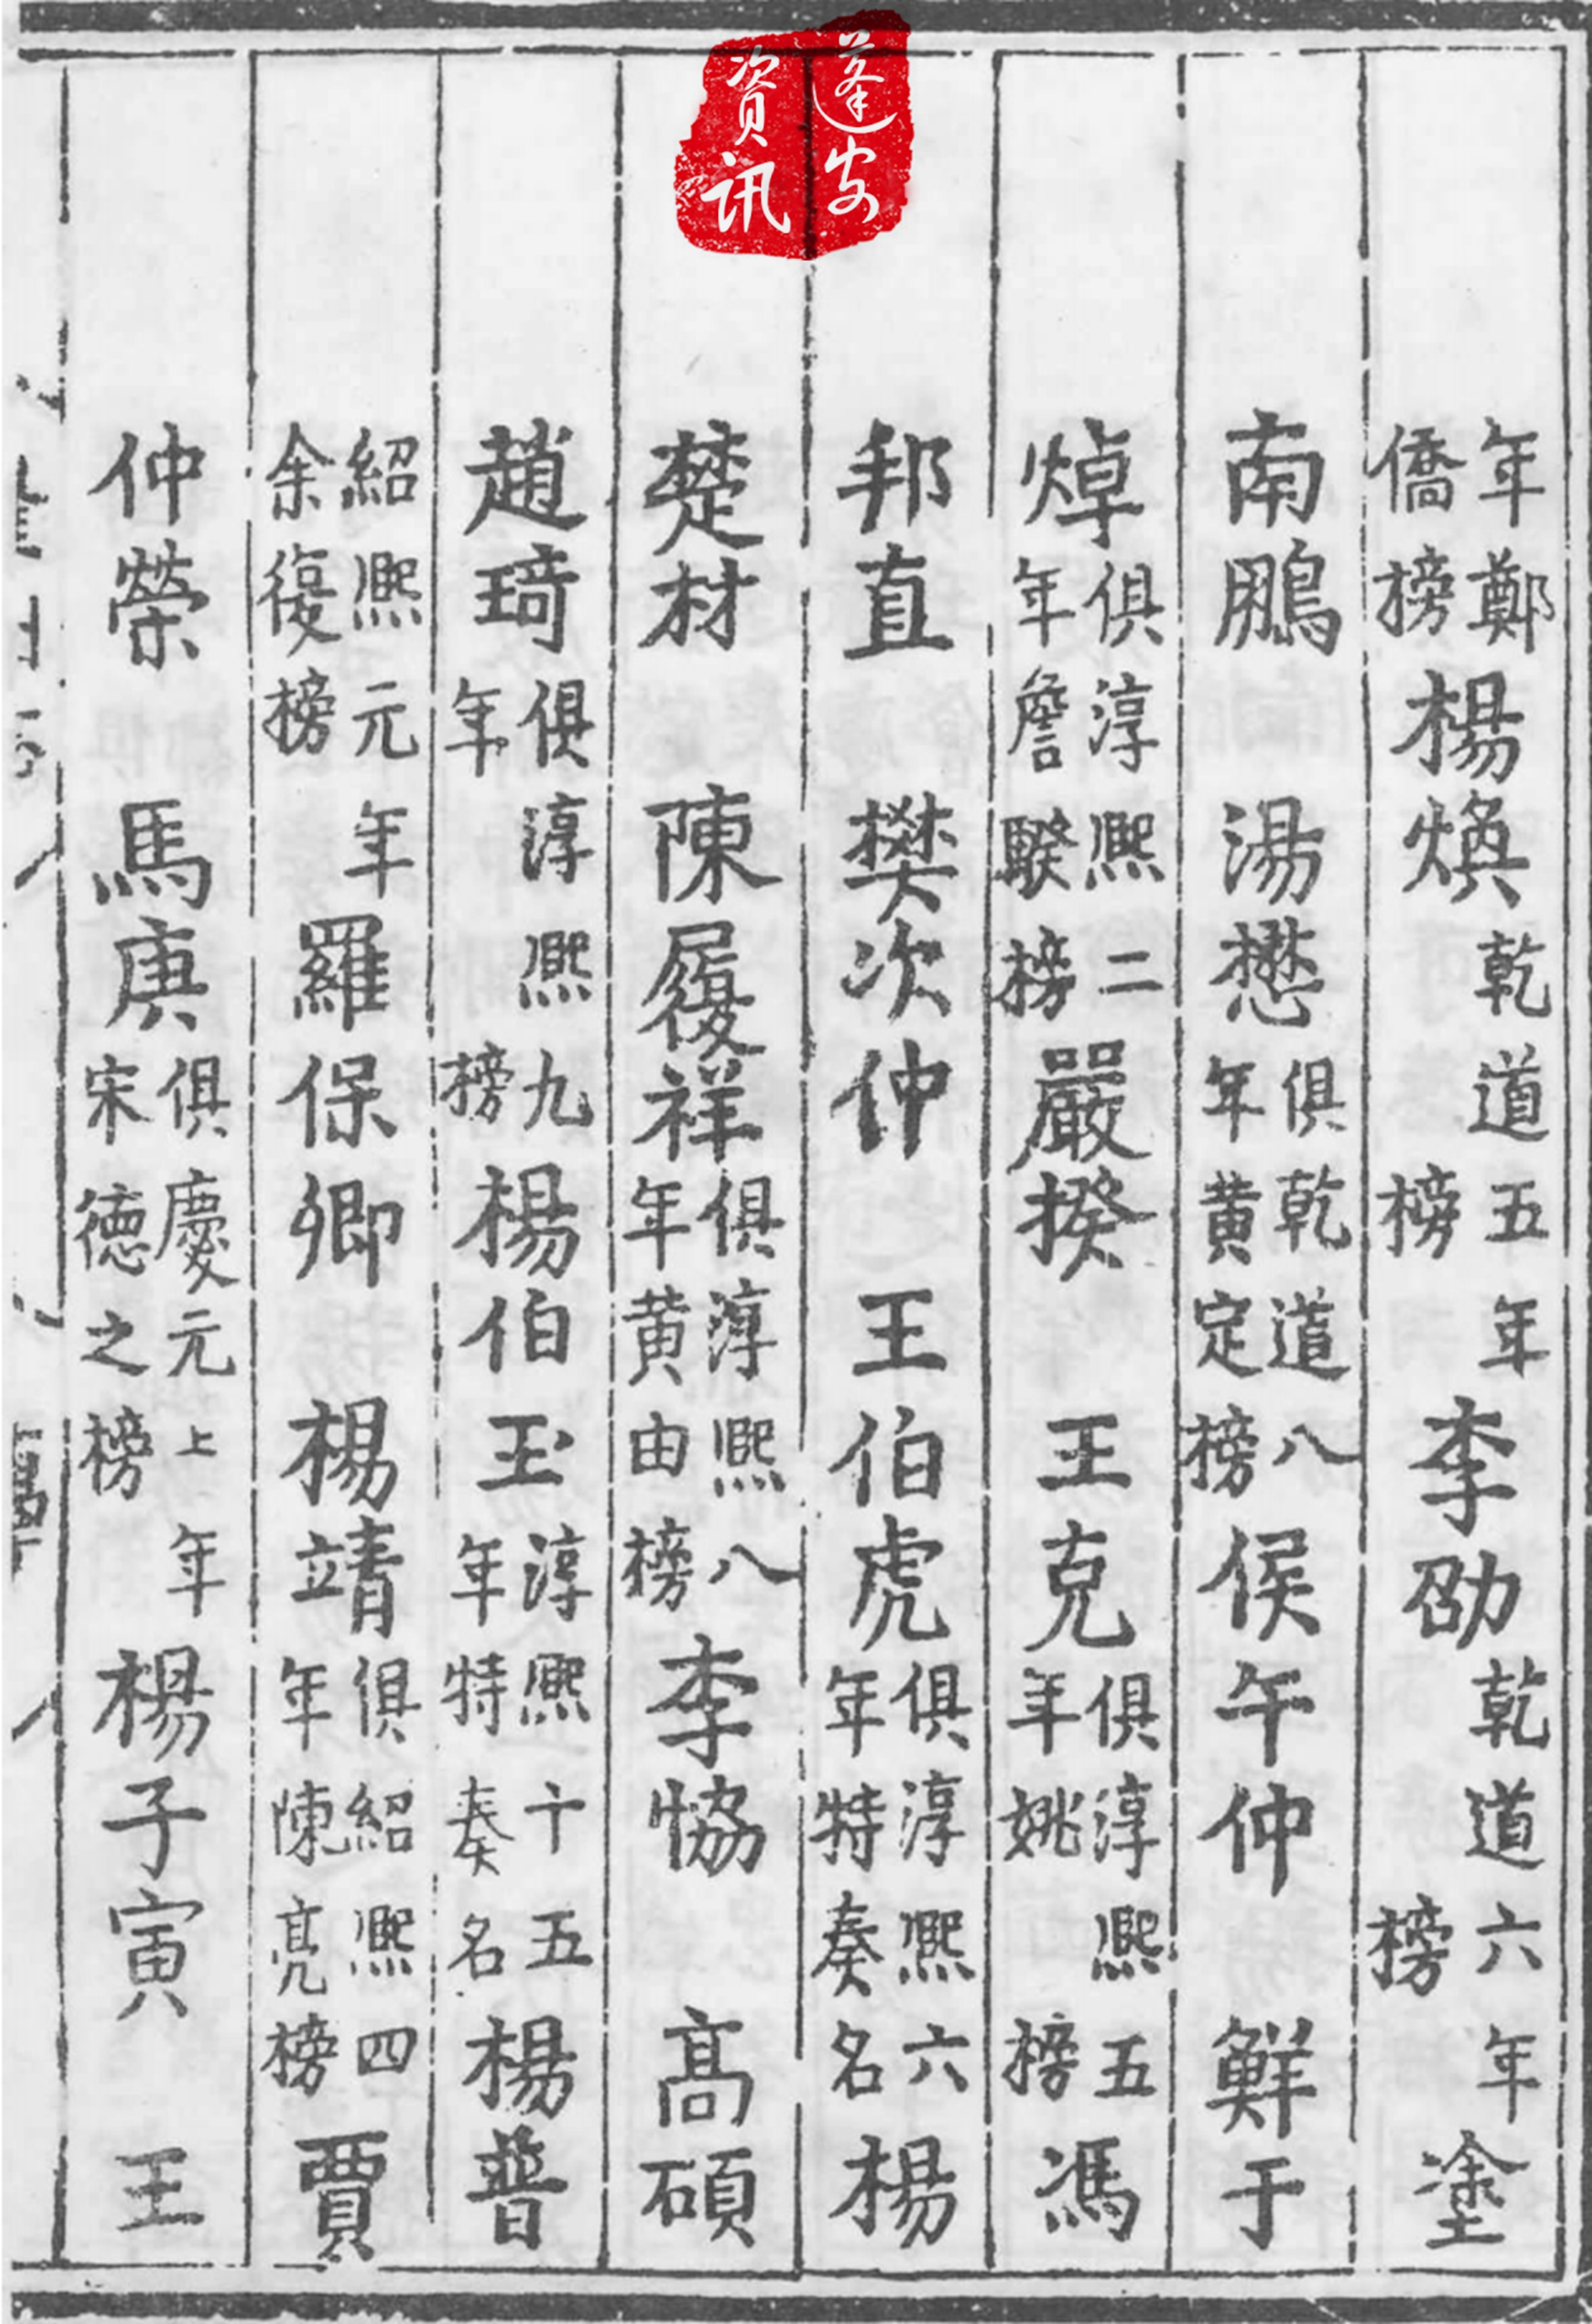 蓬安
資訊
年鄭僑榜楊煥乾道五年榜李劭乾道六年榜塗
南鵬 湯懋俱乾道八年黃定榜侯午仲 鮮于
焯俱淳熙二年詹騤榜嚴揆 王克俱淳熙五年姚榜馮
邦直 樊次仲 王伯虎俱淳熙六年特奏名楊
楚材 陳履祥俱淳熙八年黃由榜李恊 高碩
趙琦俱淳熙九年榜楊伯玉淳熙十五年特奏名楊普
紹熙元年余復榜羅保卿 楊靖俱紹熙四年陳亮榜賈
仲榮 馬庚俱慶元上年宋德之榜楊子寅 王